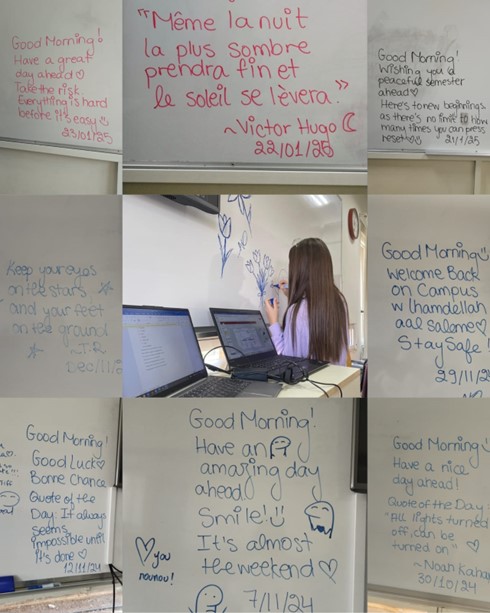 Good Morning!
Have a great
day ahead♡
Take the risk
Everything is hard
before it's easy
23/01/25
"Même la nuit
la plus sombre
prendra fin et
le soleil se lèvera."
~Victor Hugo
22/01/25
Good Morning!
Wishing you a
peaceful semester
ahead♡
Here's to new beginnings
as there's no limit to How
many times you can press
reset
21/1/25
Keep your eyes
on the stars
and your feet
on the ground
~T.R
Dec/11/2
Good Morning
Welcome Back
on Campus
w lhamdellah
aal salome♡
Stay Safe!
29/11/2
Good Morning!
Good Luck♡
Bonne Chance
Quote of the
Day: It always
seems
impossible until
it's done ♡
12/11/24
Good Morning!
Have an
amazing day
ahead
Smile!
It's almost
the weekend♡
7/11/24
♡you
nounou!
Good Morning
Have a nice
day ahead!
Quote of the Day:
"All lights turned
off, can be
turned on" ♡
~Noah Kahan
30/10/24